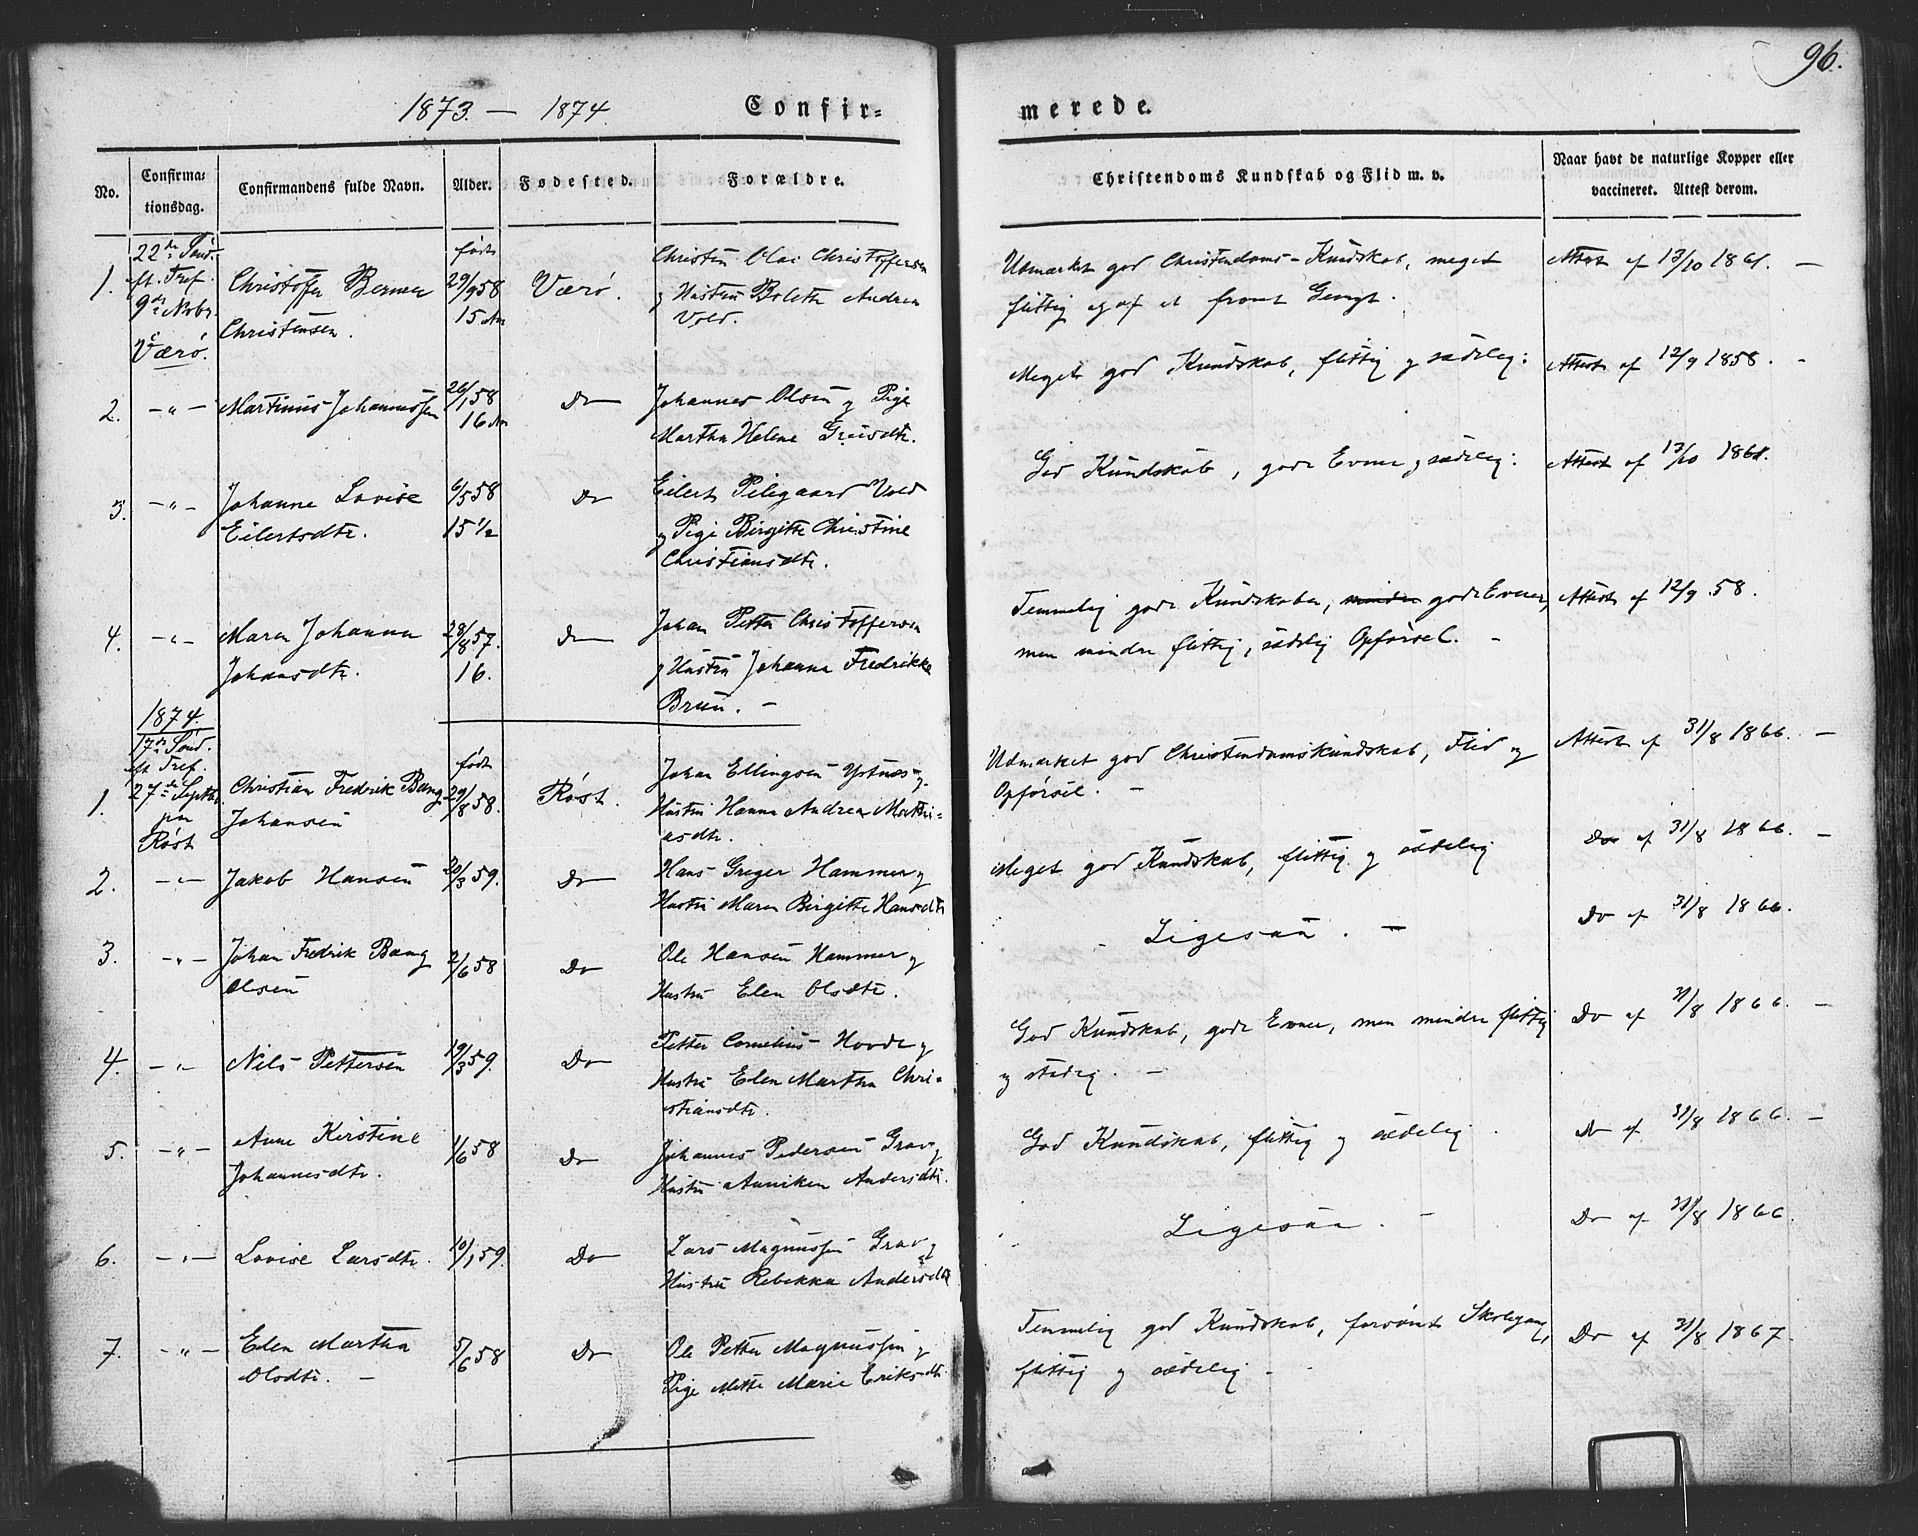 96.
1873. — 1874. Confir=
merede.
No. Confirma=tionsdag. Confirmandens fulde Navn. Alder. Fødested. Forældre.
Christendoms Kundskab og Flid m. v. Naar havt de naturlige Kopper eller vaccineret. Attest derom.
22de Sønd. født Christen Olai Christoffersen
1. ft. Tref. Christofer Berner 29/9 58 Værø. og Hustru Boleth Andrea
9de Novbr. Christensen. 15 Aar Vold.
i Værø.
Udmærket god Christendoms-Kundskab, meget Attest af 13/10 1861. —
flittig og af et fromt Gemyt.
2. —"— Martinus Johannessen 26/1 58 Do Johannes Olsen og Pige
16 Aar Martha Helene Greisdtr.
Meget god Kundskab, flittig og sædelig: Attest af 12/9 1858. —
3. —"— Johanne Lovise 6/5 58 Do Eilert Pilegaard Vold
Eilertsdtr. 15 1/2 og Pige Birgitte Christine
Christiansdtr.
God Kundskab, gode Evner, sædelig: Attest af 13/10 1861.
4. —"— Maren Johanna 28/8 57. Do Johan Petter Christoffersen
Johansdtr. 16. og Hustru Johanna Fredrikke
Brun. —
Temmelig gode Kundskaber, mindre gode Evner, Attest af 12/9 58.
men mindre flittig, sædelig Opførsel. —
1874.
17de Sønd. født Johan Ellingsen Ystnes og
ft. Tref.
1. 27de Septbr. Christian Fredrik Bang 29/8 58. Røst. Hustru Hanna Andrea Mathi=
paa Johansen asdtr.
Røst
Udmærket god Christendomskundskab, Flid og Attest af 31/8 1866. —
Opførsel. —
2. —"— Jakob Hansen 20/3 59. Do Hans Greger Hammer og
Hustru Maren Birgitte Hansdtr
Meget god Kundskab, flittig og sædelig Do af 31/8 1866. —
3. —"— Johan Fredrik Bang 2/6 58 Do Ole Hansen Hammer og
Olsen Hustru Elen Olsdtr.
Ligesaa. — Do af 31/8 1866.
4. —"— Nils Pettersen 19/3 59. Do Petter Cornelius Hovde og
Hustru Elen Martha Chri=
stiansdtr.
God Kundskab, gode Evner, men mindre flittig Do af 31/8 1866. —
og stadig. —
5. —"— Anne Kirstine 1/6 58 Do Johannes Pedersen Grav og
Johannesdtr. Hustru Anniken Andersdtr.
God Kundskab, flittig og sædelig. Do af 31/8 1866. —
6. —"— Lovise Larsdtr. 10/1 59. Do Lars Magnussen Grav og
Hustru Rebekka Andersdtr
Ligesaa. — Do af 31/8 1866.
7. —"— Elen Martha 5/6 58 Do Ole Petter Magnussen og
Olsdtr. — Pige Mette Marie Eriksdtr
Temmelig god Kundskab, forsømt Skolegang, Do af 31/8 1867.
flittig og sædelig —